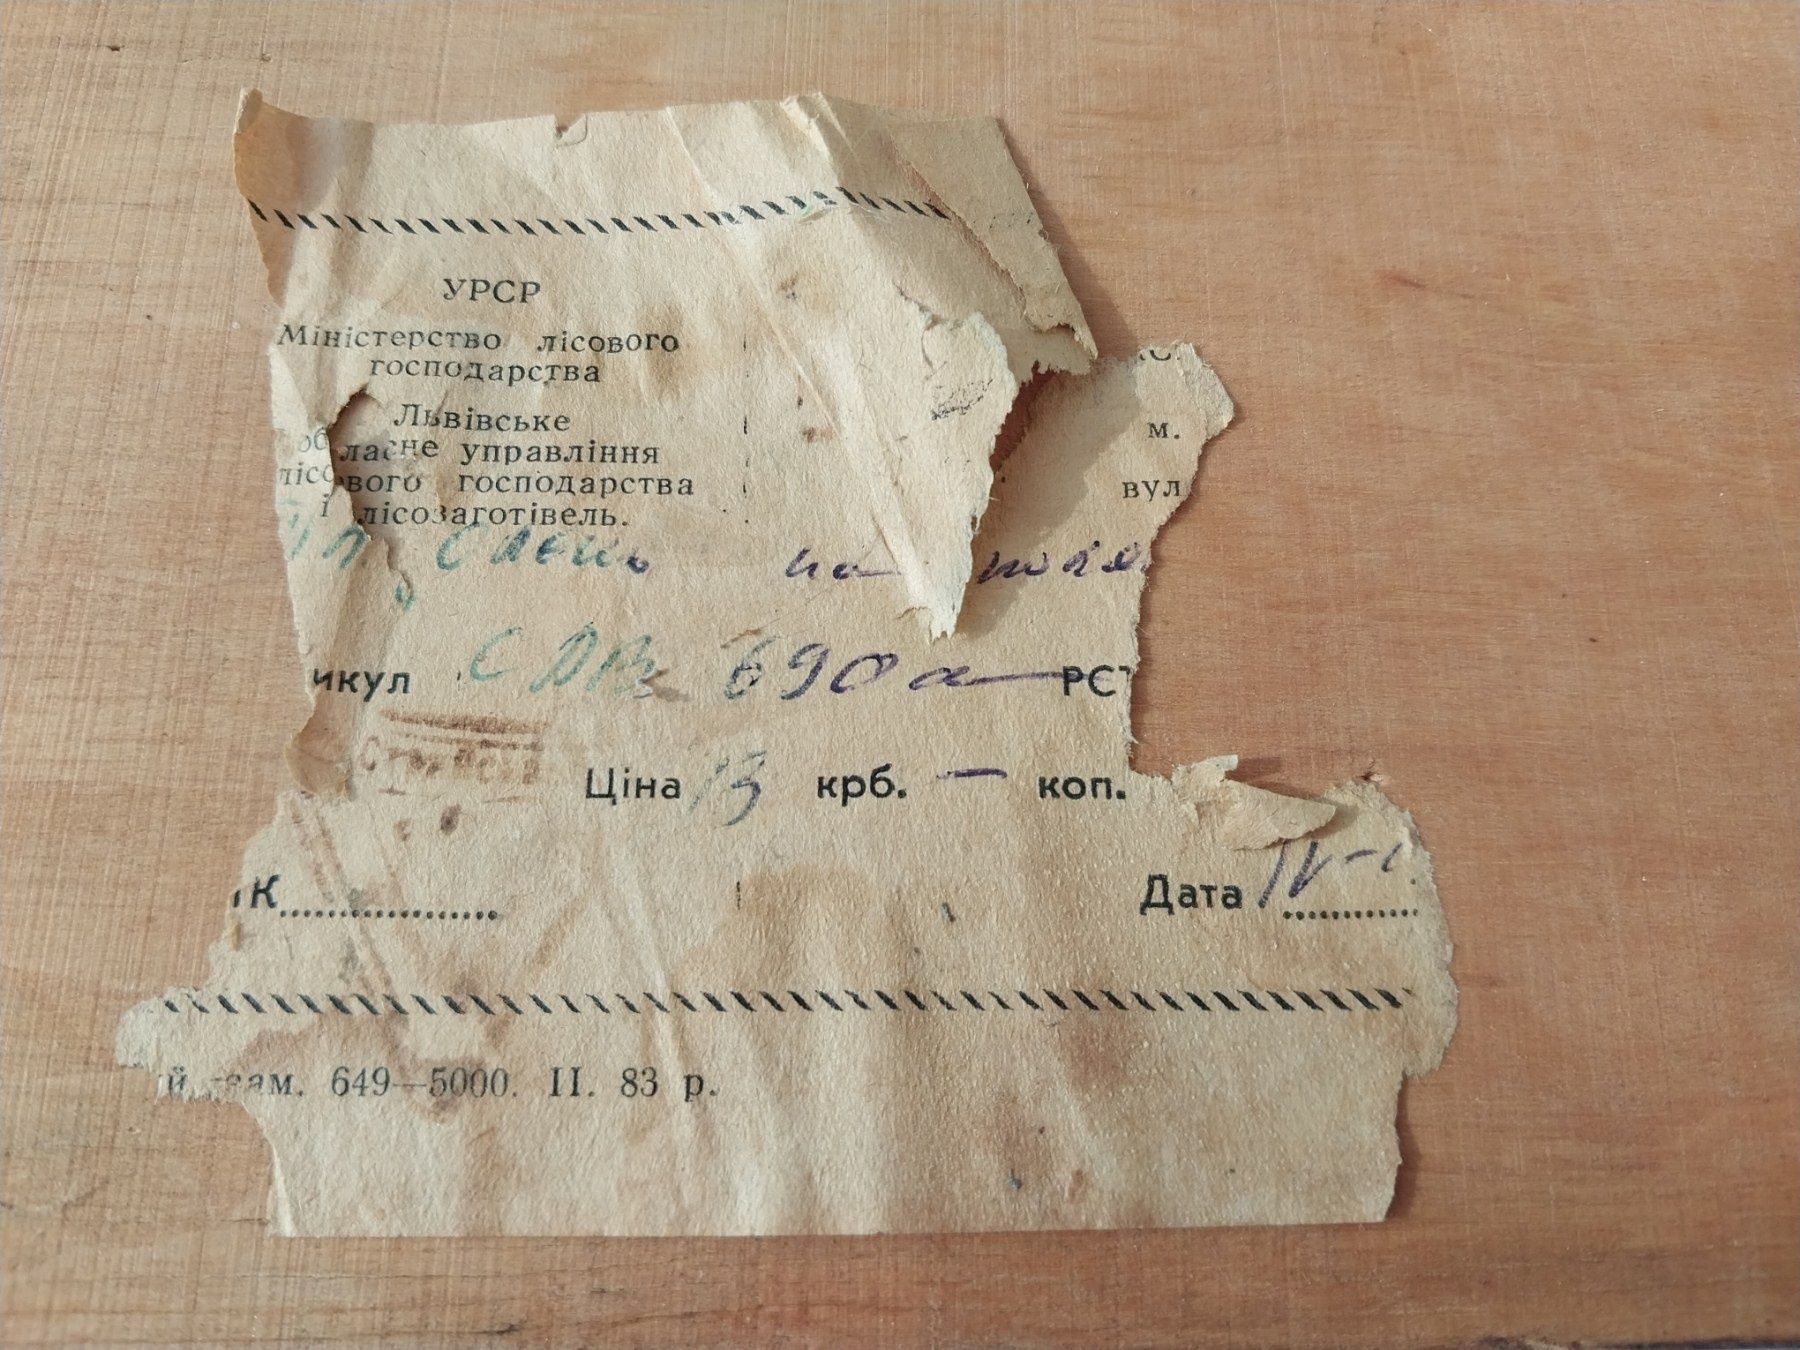 УРСР
Міністерство лісового
господарства
Львівське
обласне управління
м.
лісового господарства
вул
і лісозаготівель.
икул СДВ 690а РСТ
Ціна 13 крб. — коп.
ІК Дата IV-
ий зам. 649—5000. II. 83 р.